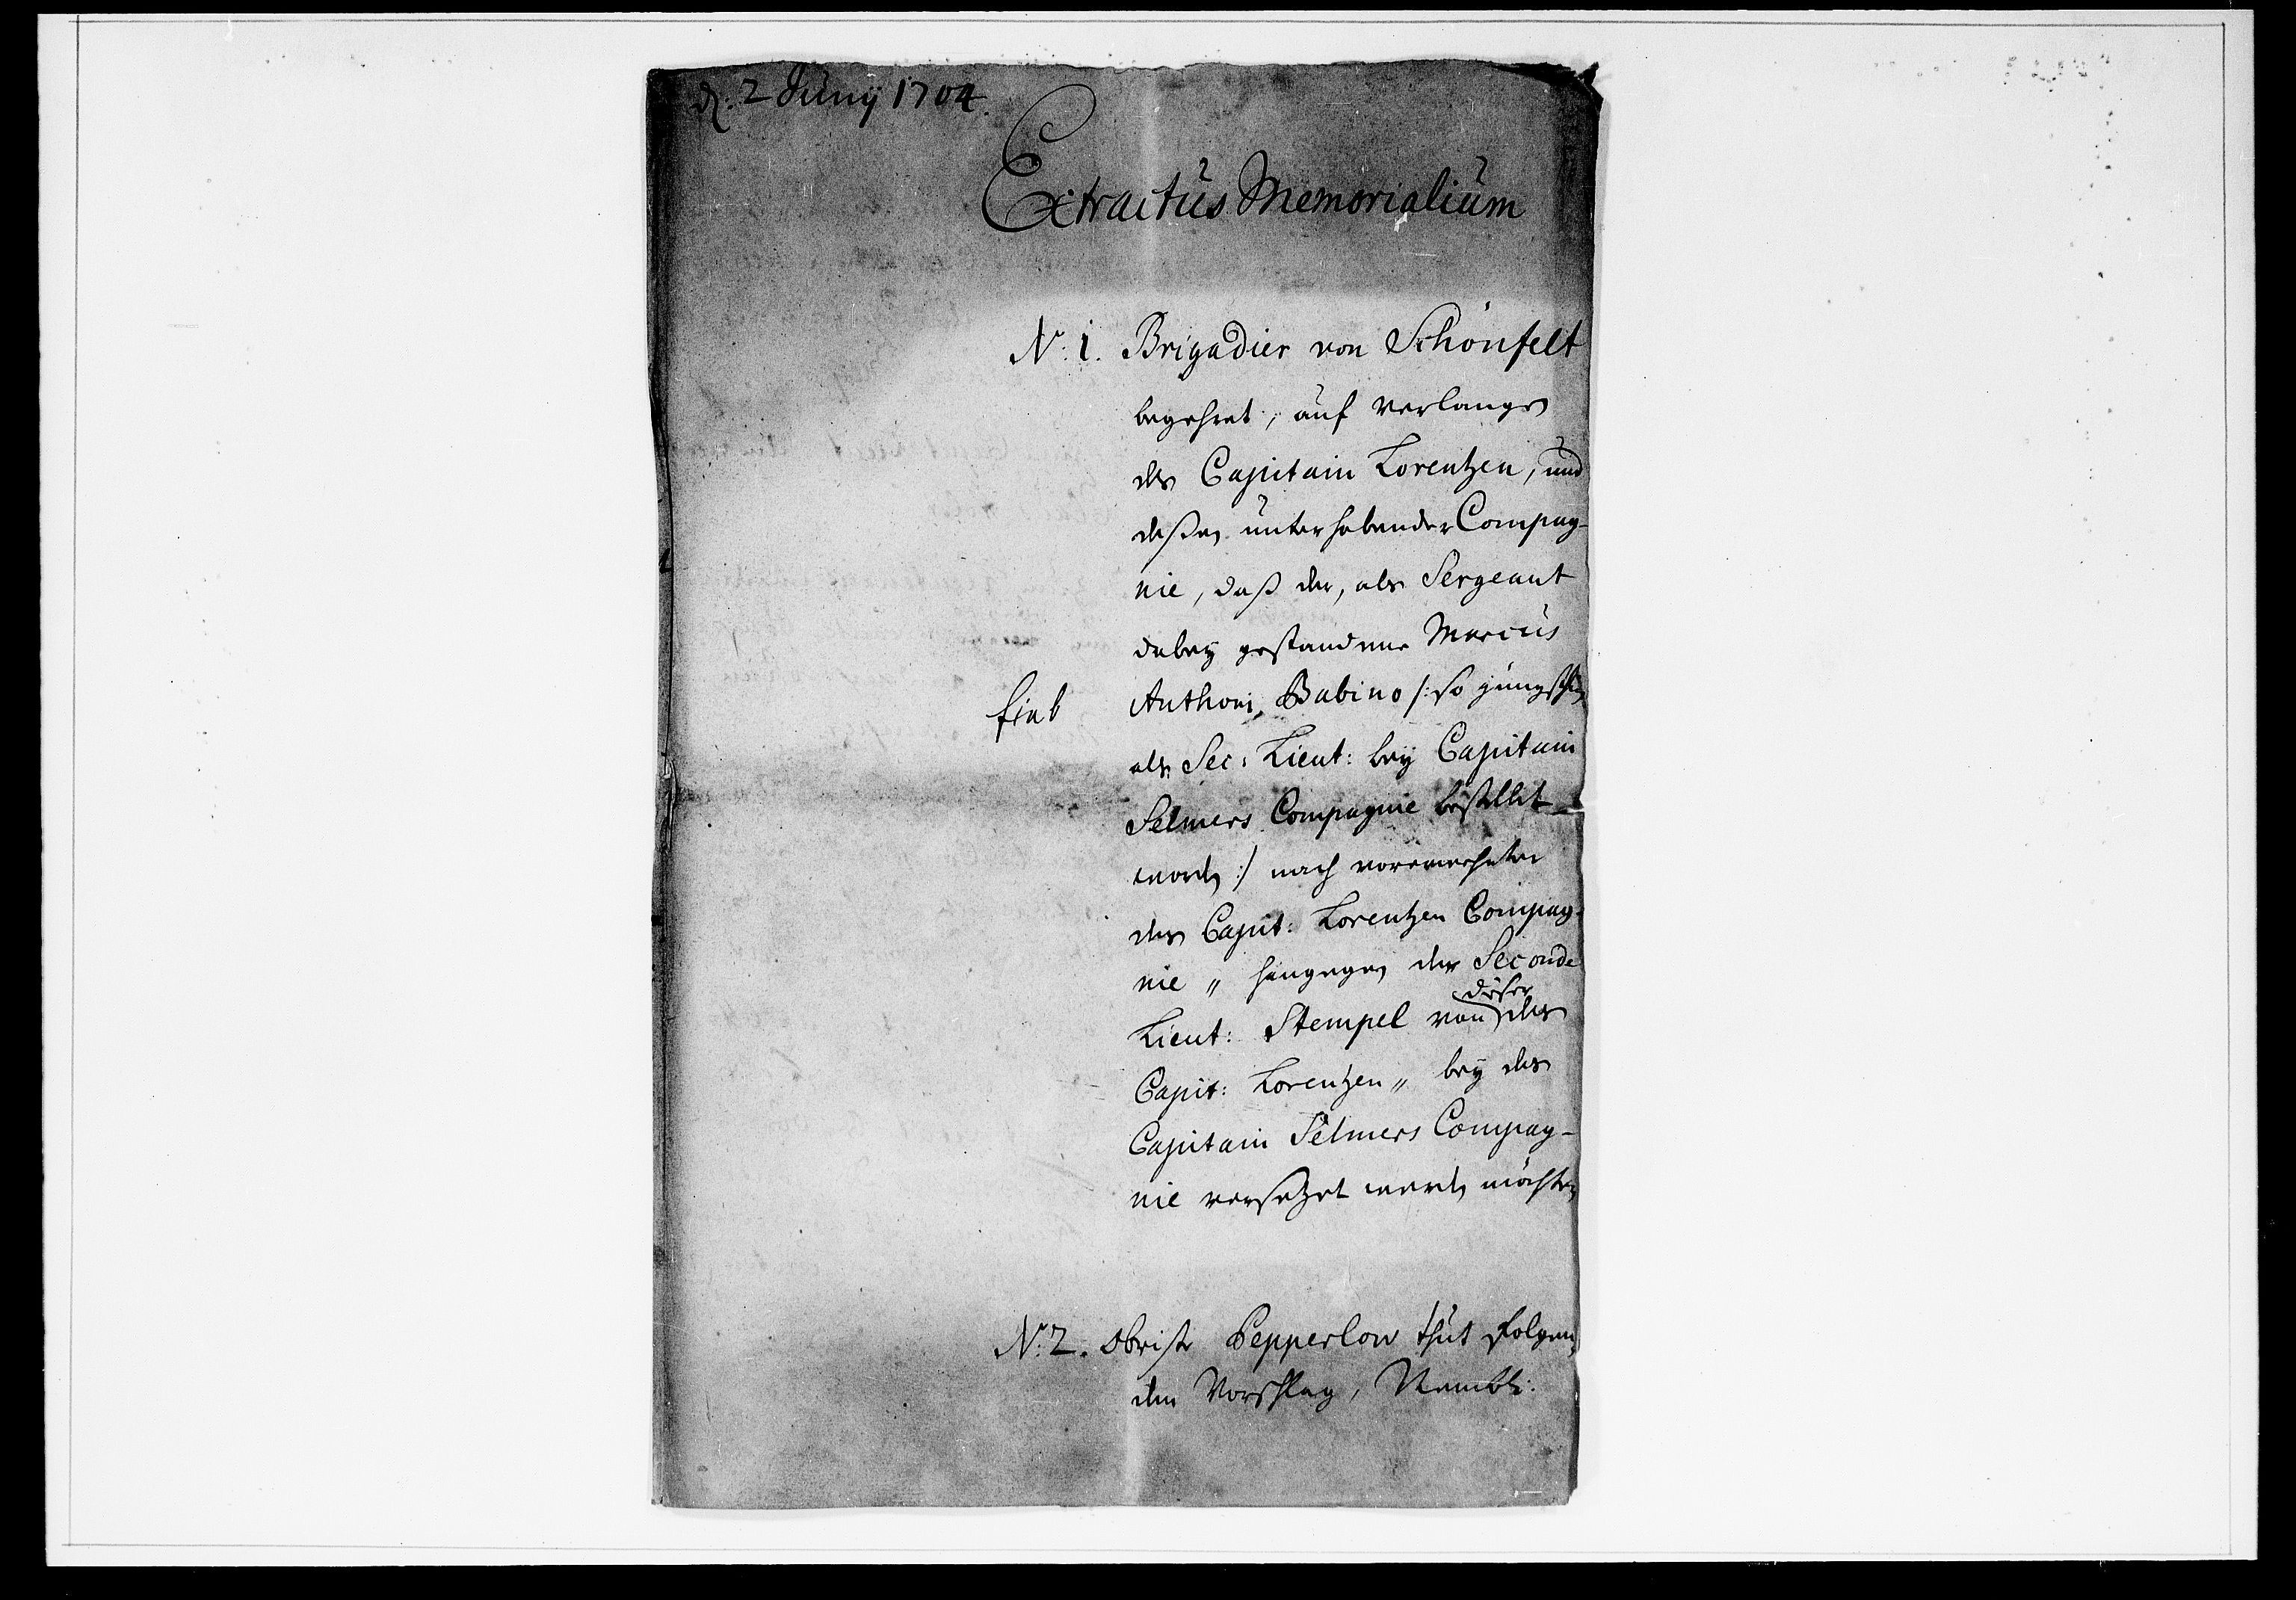 d. 2 Junÿ 1704.
Extractus Memorialium
No. 1. Brigadier von Schönfelt
begehret, auf verlangen
des Capitain Lorentzen, und
deßen unterhabender Compag-
nie, daß der, als Sergeant
dabeÿ gestandene Marcus
fiat
Anthoni Babino /: so jüngsthin
als Sec: Lieut: beÿ Capitain
Selmers Compagnie bestellet
worden :/ nach vorerwehnter
des Capit: Lorentzen Compag-
nie „ hingegen der Seconde
Lieut: Stempel von dieser des
Capit: Lorentzen „ beÿ des
Capitain Selmers Compag-
nie versetzet werden möchten
No. 2. Obrister Pepperlow thut folgen-
den Vorschlag, Nembl: